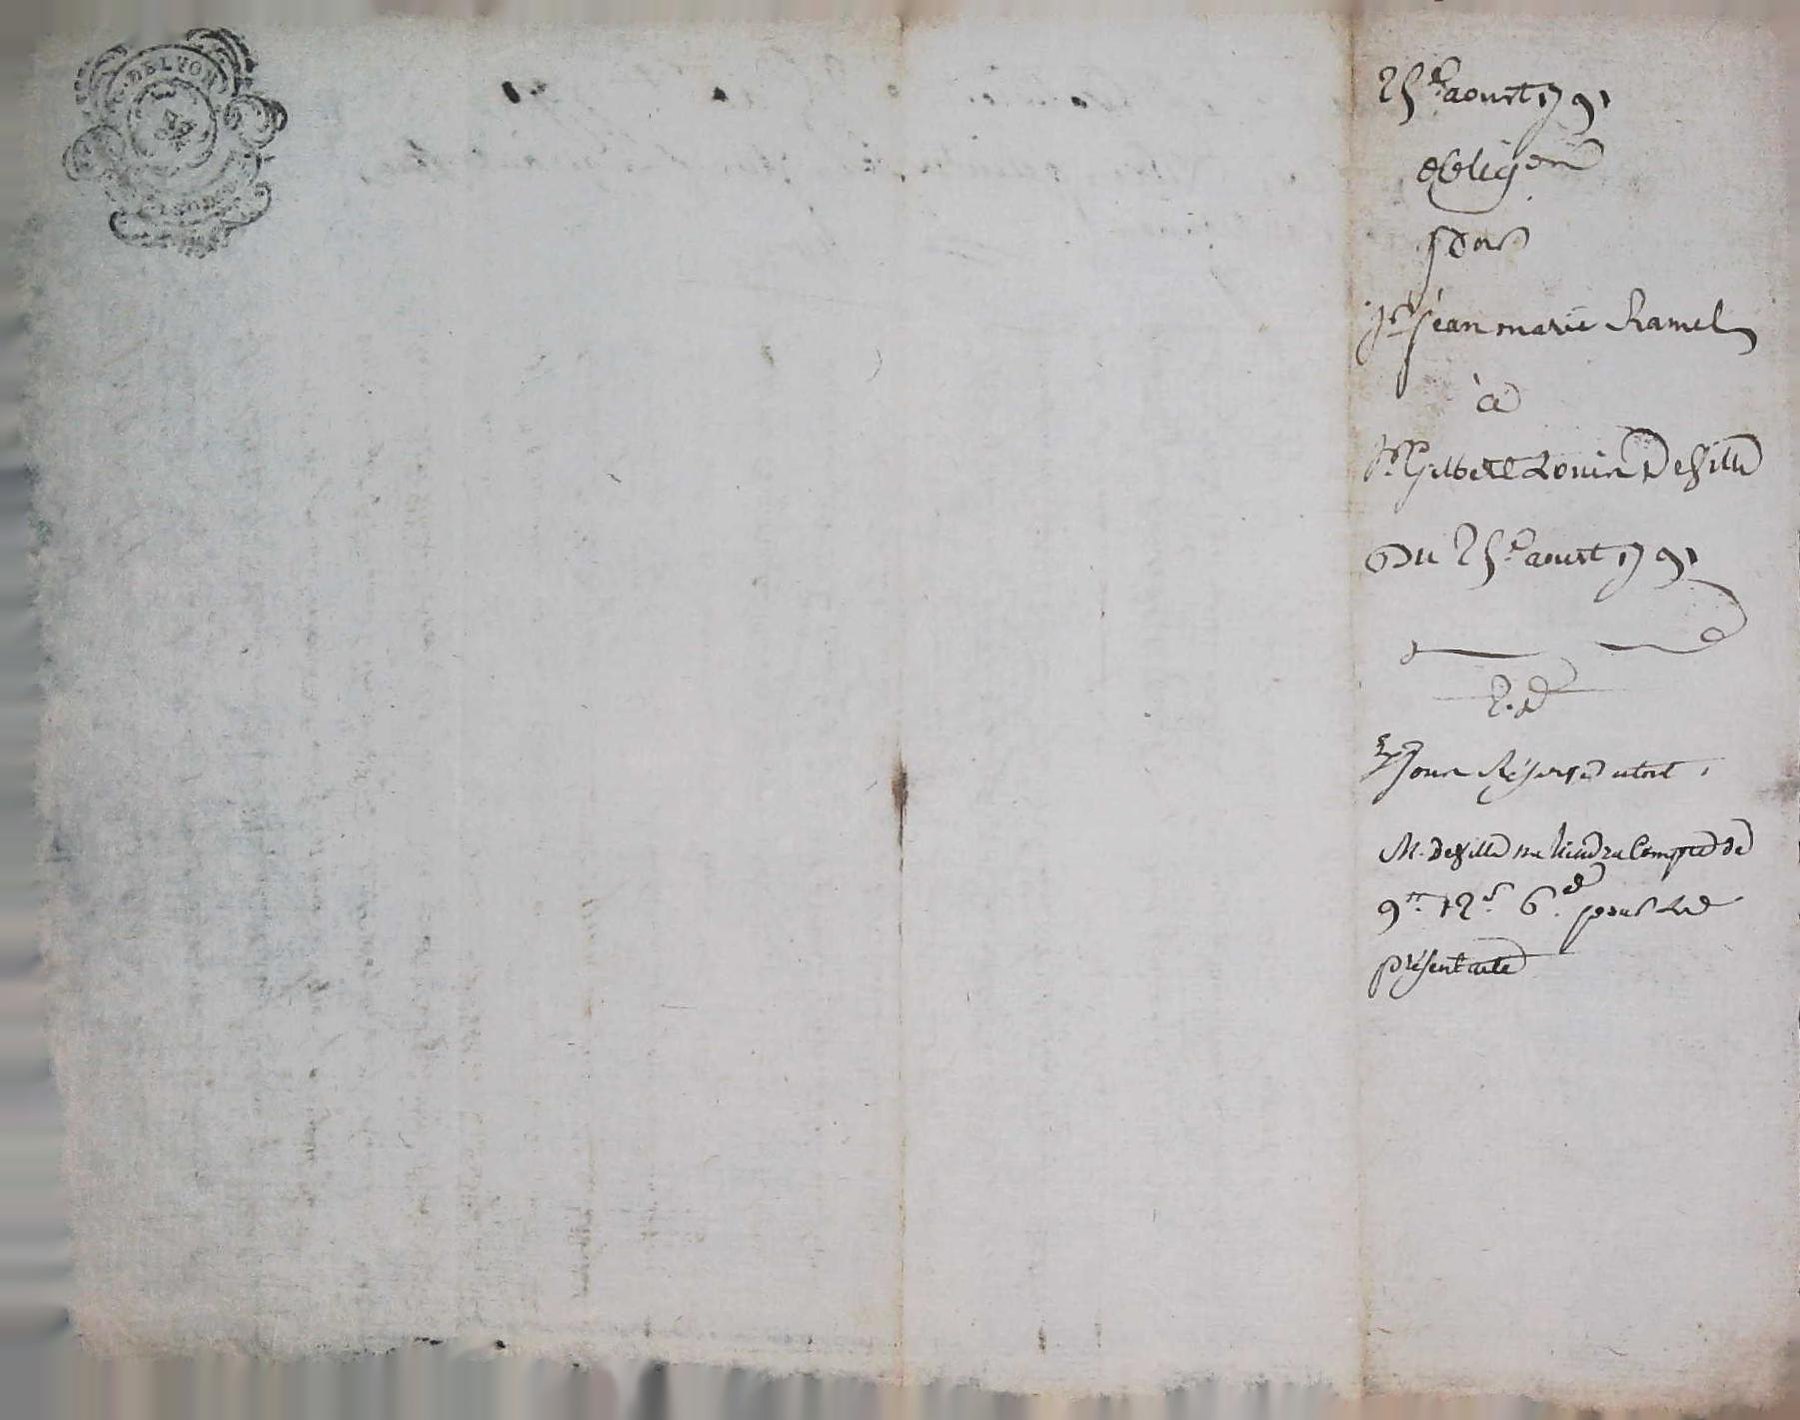 DE LYON
25e. aoust 1791
obligon
par
Sr. jean marie Ramel
à
Sr. Gilbert Louis Deville
Du 25e. aoust 1791
M. Deville me tiendra Compte de
9tt. 12s. 6d. pour le
présent acte